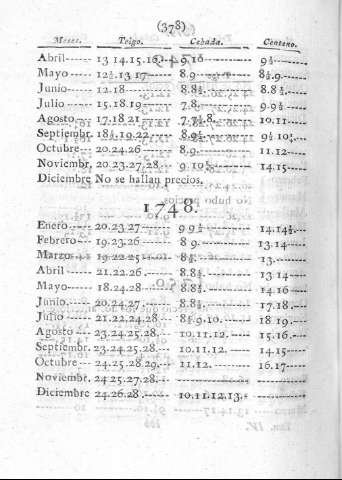 (378)
Meses. Trigo. Cebada. Centeno.
Abril 13 14.15.16. 9.10 9½
Mayo 12½.13 17 8.9 8½.9.
Junio 12.18 8.8½. 8.8½.
Julio 15.18.19 7.8. 9.9½
Agosto. 17.18 21 7.7½.8. 10.11
Septiembr. 18½.19.22. 8.9½. 9½ 10½
Octubre 20.24.26 8.9. 11.12
Noviembr. 20.23.27.28. 9.10½ 14.15
Diciembre No se hallan precios.
1748.
Enero 20.23.27. 9 9½ 14.14½.
Febrero 19.23.26 8 9. 13.14
Marzo 19.22 25 8½. 13.
Abril 21.22.26. 8.8½. 13 14
Mayo 18.24.28 8.8½. 14.16
Junio. 20.24.27. 8.8½. 17.18.
Julio 21.22.24.28 8½.9.10. 18 19.
Agosto 23.24.25.28. 10.11.12. 15.16.
Septiembr. 23.24.25.28. 10.11.12. 14.15
Octubre 24.25.28.29. 11.12. 16.17
Noviembr. 24 25.27.28.
Diciembre 24.26.28. 10.11.12.13.